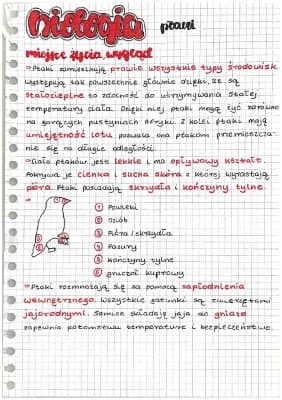 biologia ptaki
miejsce życia, wygląd
Ptaki zamieszkują prawie wszystkie typy środowisk
występują tak powszechnie głównie dzięki, że są
stałocieplne to zdolność do utrzymywania stałej
temperatury ciała. Dzięki niej ptaki mogą żyć zarówno
na gorących pustyniach Afryki. Z kolei ptaki mają
umiejętność lotu pozwala ona ptakom przemieszcza-
nie się na długie odległości.
Ciało ptaków jest lekkie i ma opływowy kształt.
Pokrywa je cienka i sucha skóra z której wyrastają
pióra. Ptaki posiadają skrzydła i kończyny tylne.
1 Powieki
2 Dziób
3 Pióra/skrzydła
4 Pazury
5 Kończyny tylne
6 gruczoł kuprowy
Ptaki rozmnażają się za pomocą zapłodnienia
wewnętrznego. Wszystkie gatunki są zwierzętami
jajorodnymi. Samice składają jaja do gniazd
zapewnia potomstwu temperaturę i bezpieczeństwo.